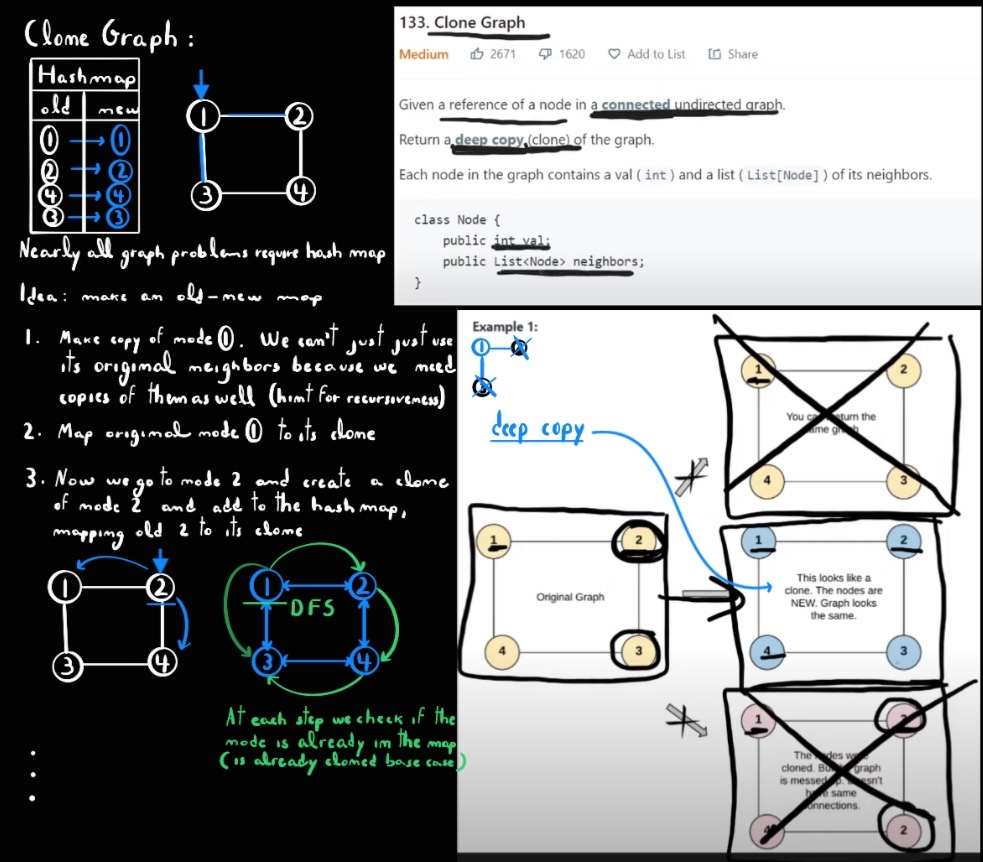 Clone Graph :
Hashmap
old new
1 → 1
2 → 2
4 → 4
3 → 3
1 2
3 4
Nearly all graph problems require hash map
Idea: make an old-new map
1. Make copy of node 1. We can't just just use
its original neighbors because we need
copies of them as well (hint for recursiveness)
2. Map original node 1 to its clone
3. Now we go to node 2 and create a clone
of node 2 and add to the hashmap,
mapping old 2 to its clone
1 2
3 4
1 2
DFS
3 4
At each step we check if the
node is already in the map
(is already cloned base case)
133. Clone Graph
Medium 2671 1620 Add to List Share
Given a reference of a node in a connected undirected graph.
Return a deep copy (clone) of the graph.
Each node in the graph contains a val ( int ) and a list ( List[Node] ) of its neighbors.
class Node {
public int val;
public List<Node> neighbors;
}
Example 1:
1
deep copy
1 2
You
turn the
4 3
1 2
Original Graph
4 3
1 2
This looks like a
clone. The nodes are
NEW. Graph looks
the same.
4 3
1
The
cloned.
graph
is messed
same
connections.
4 2